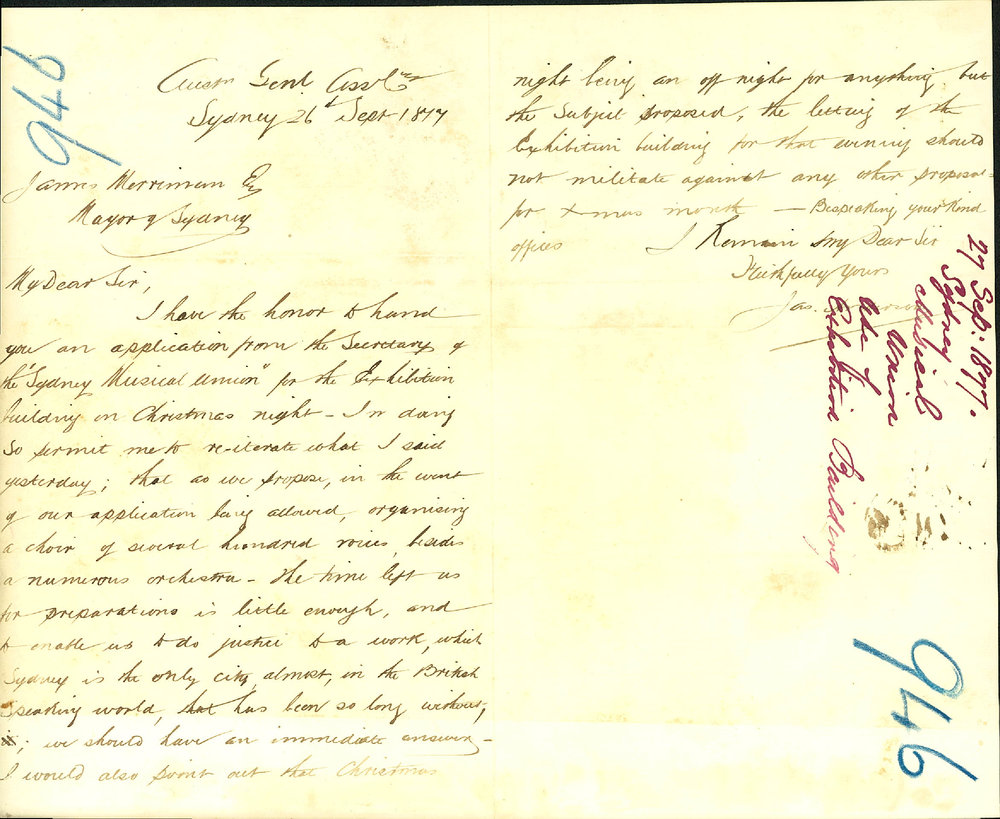 946
Austn Genl Assce
Sydney 26th Sept 1877
James Merriman Esq
Mayor of Sydney
My Dear Sir,
I have the honor to hand
you an application from the Secretary of
the "Sydney Musical Union" for the Exhibition
building on Christmas night - In doing
so permit me to re-iterate what I said
yesterday; that as we propose, in the event
of our application being allowed, organising
a choir of several hundred voices, besides
a numerous orchestra - the time left us
for preparations is little enough, and
to enable us to do justice to a work, which
Sydney is the only city, almost, in the British
speaking world, that has been so long without,
; we should have an immediate answer -
I would also point out that Christmas
night being an off night for anything but
the Subject proposed, the letting of the
Exhibition building for that evening should
not militate against any other proposal
for Xmas month — Bespeaking your kind
offices I Remain My Dear Sir
Faithfully Yours
Jas.
27 Sep: 1877.
Sydney
Musical
Union
Use of
Exhibition Building
946